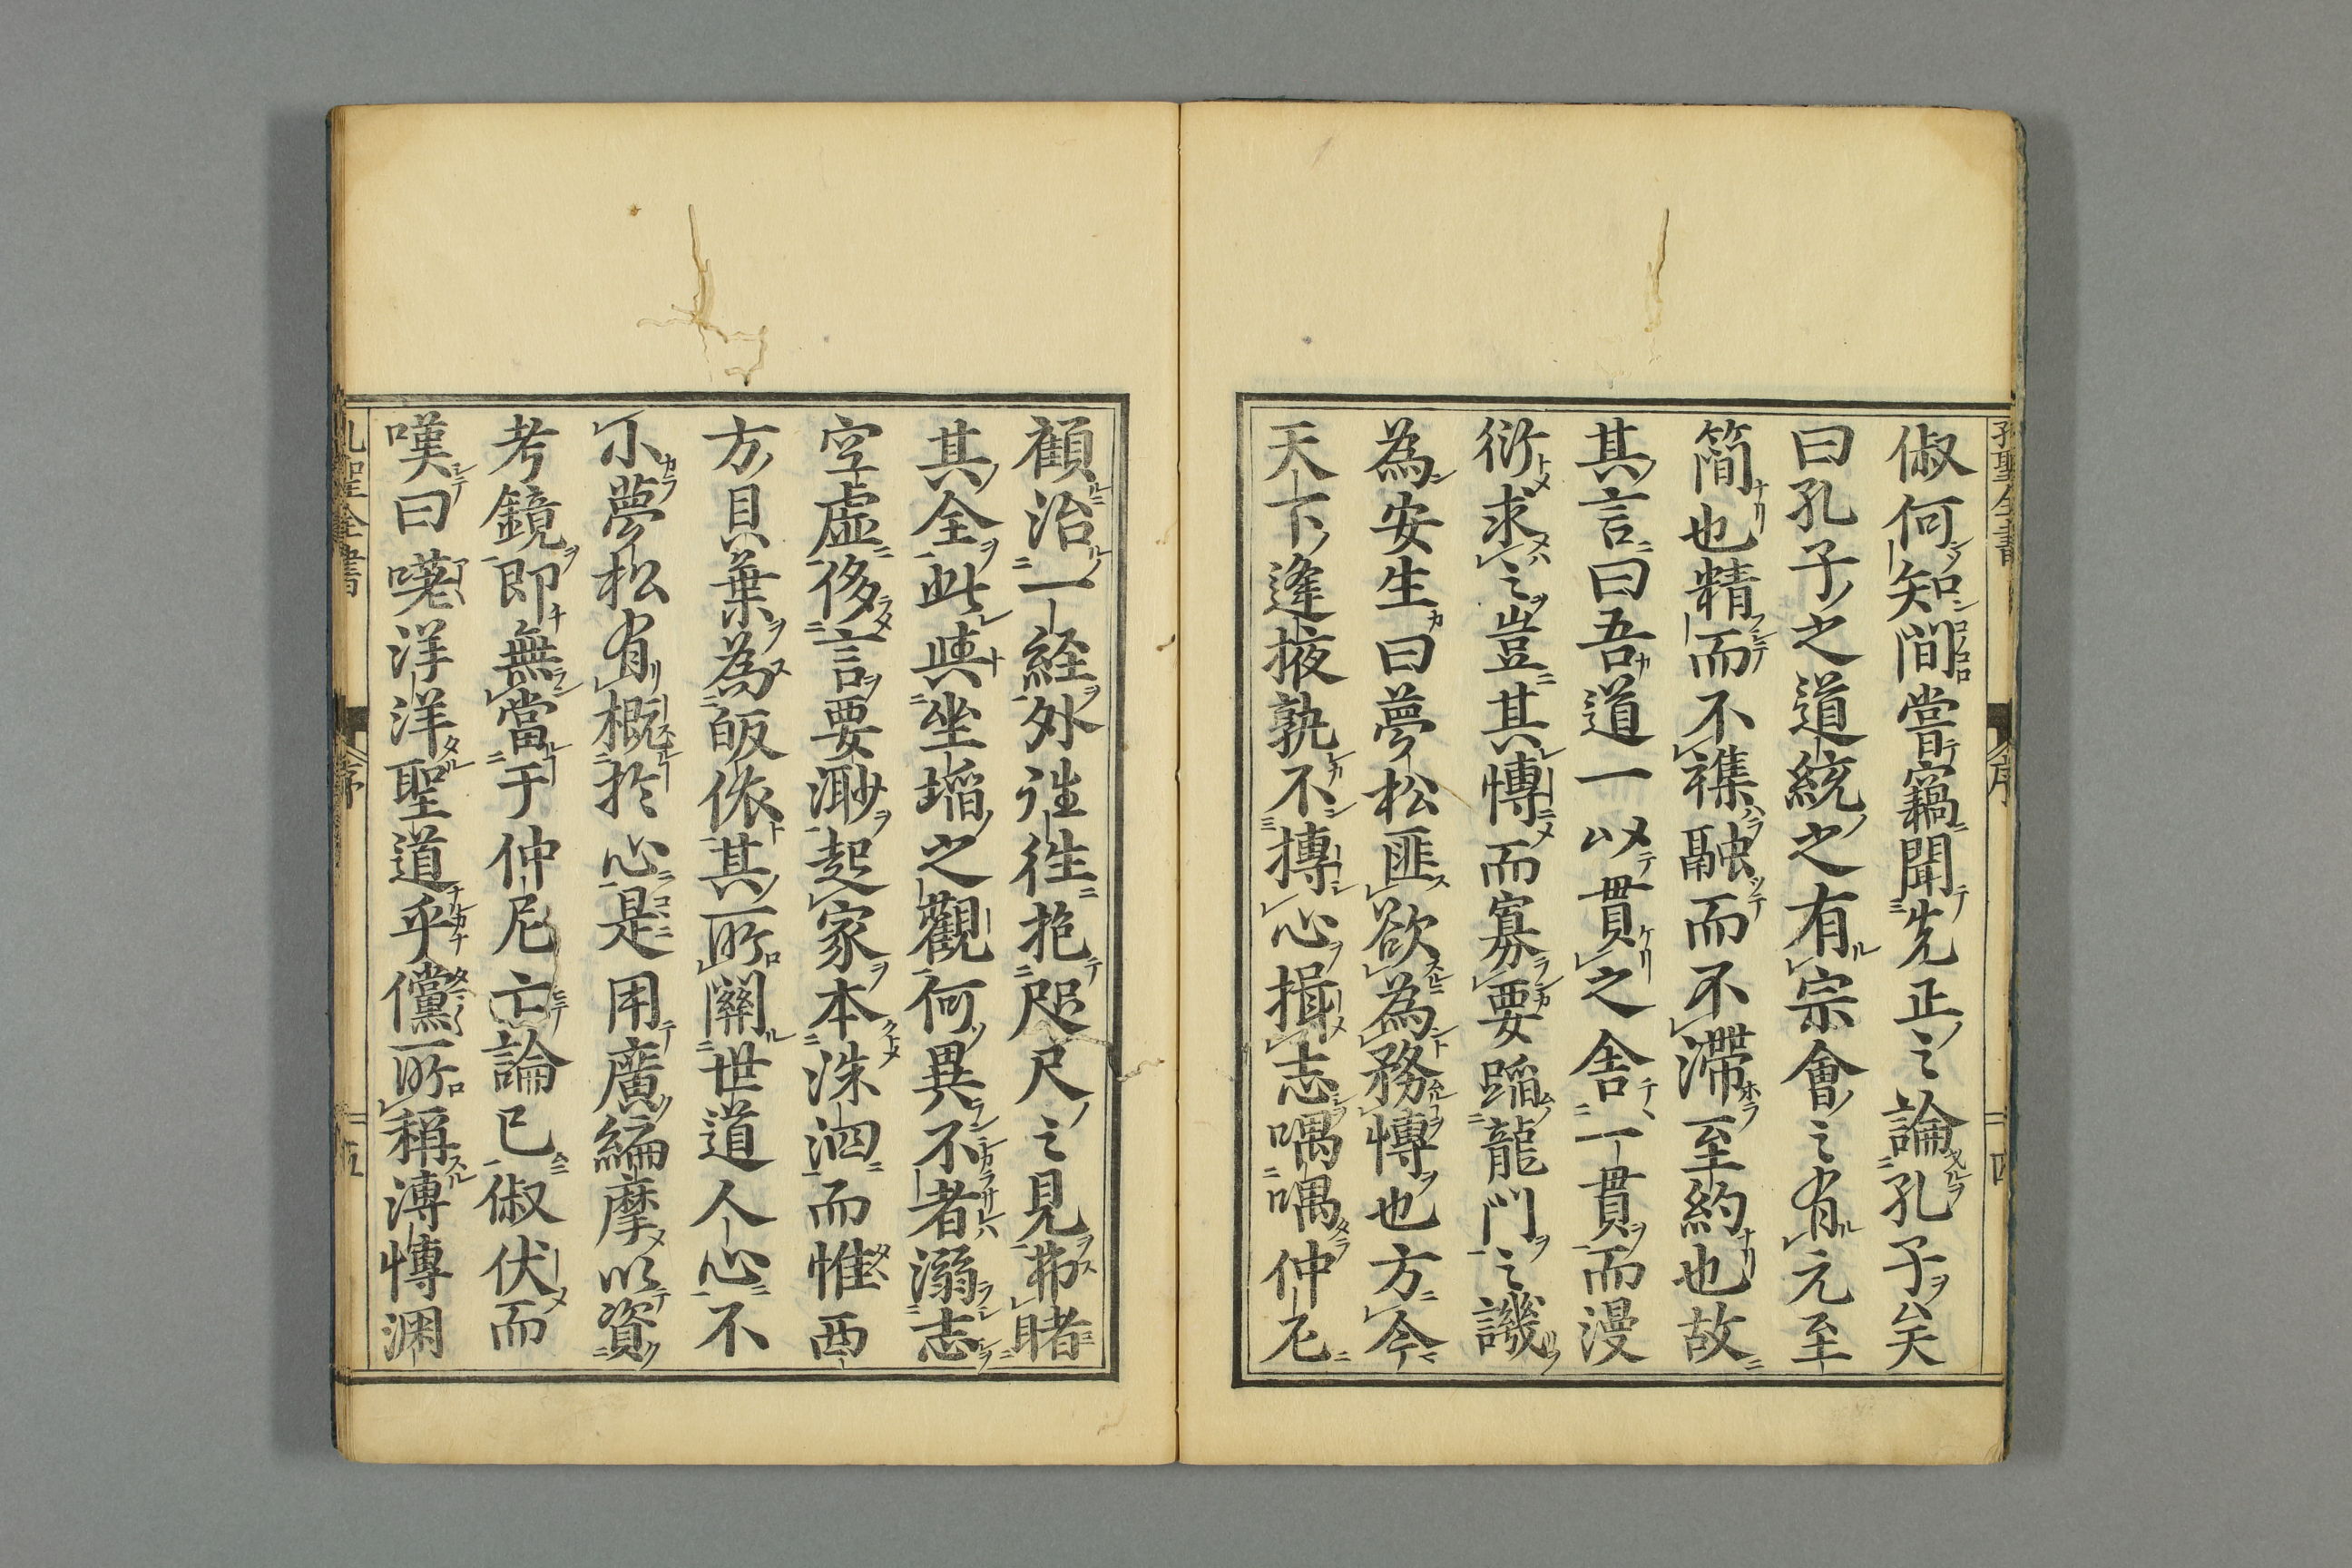 俶何知間嘗竊聞先正之論孔子矣
曰孔子之道統之有宗會之有元至
簡也精而不襍融而不滯至約也故
其言曰吾道一以貫之舍一貫而漫
衍求之豈其慱而寡要蹈龍門之譏
為安生曰夢松匪欲為務慱也方今
天下逢掖孰不摶心揖志喁喁仲尼
顧治一経外往往抱咫尺之見弗睹
其全此與坐堦之觀何異不者溺志
空虛侈言要渺起家本洙泗而惟西
方貝葉為皈依其所關世道人心不
小夢松有概於心是用廣編摩以資
考鏡即無當于仲尼亡論已俶伏而
嘆曰嘆洋洋聖道乎儻所稱溥慱淵
孔聖全書
序
四
孔聖全書
序
五